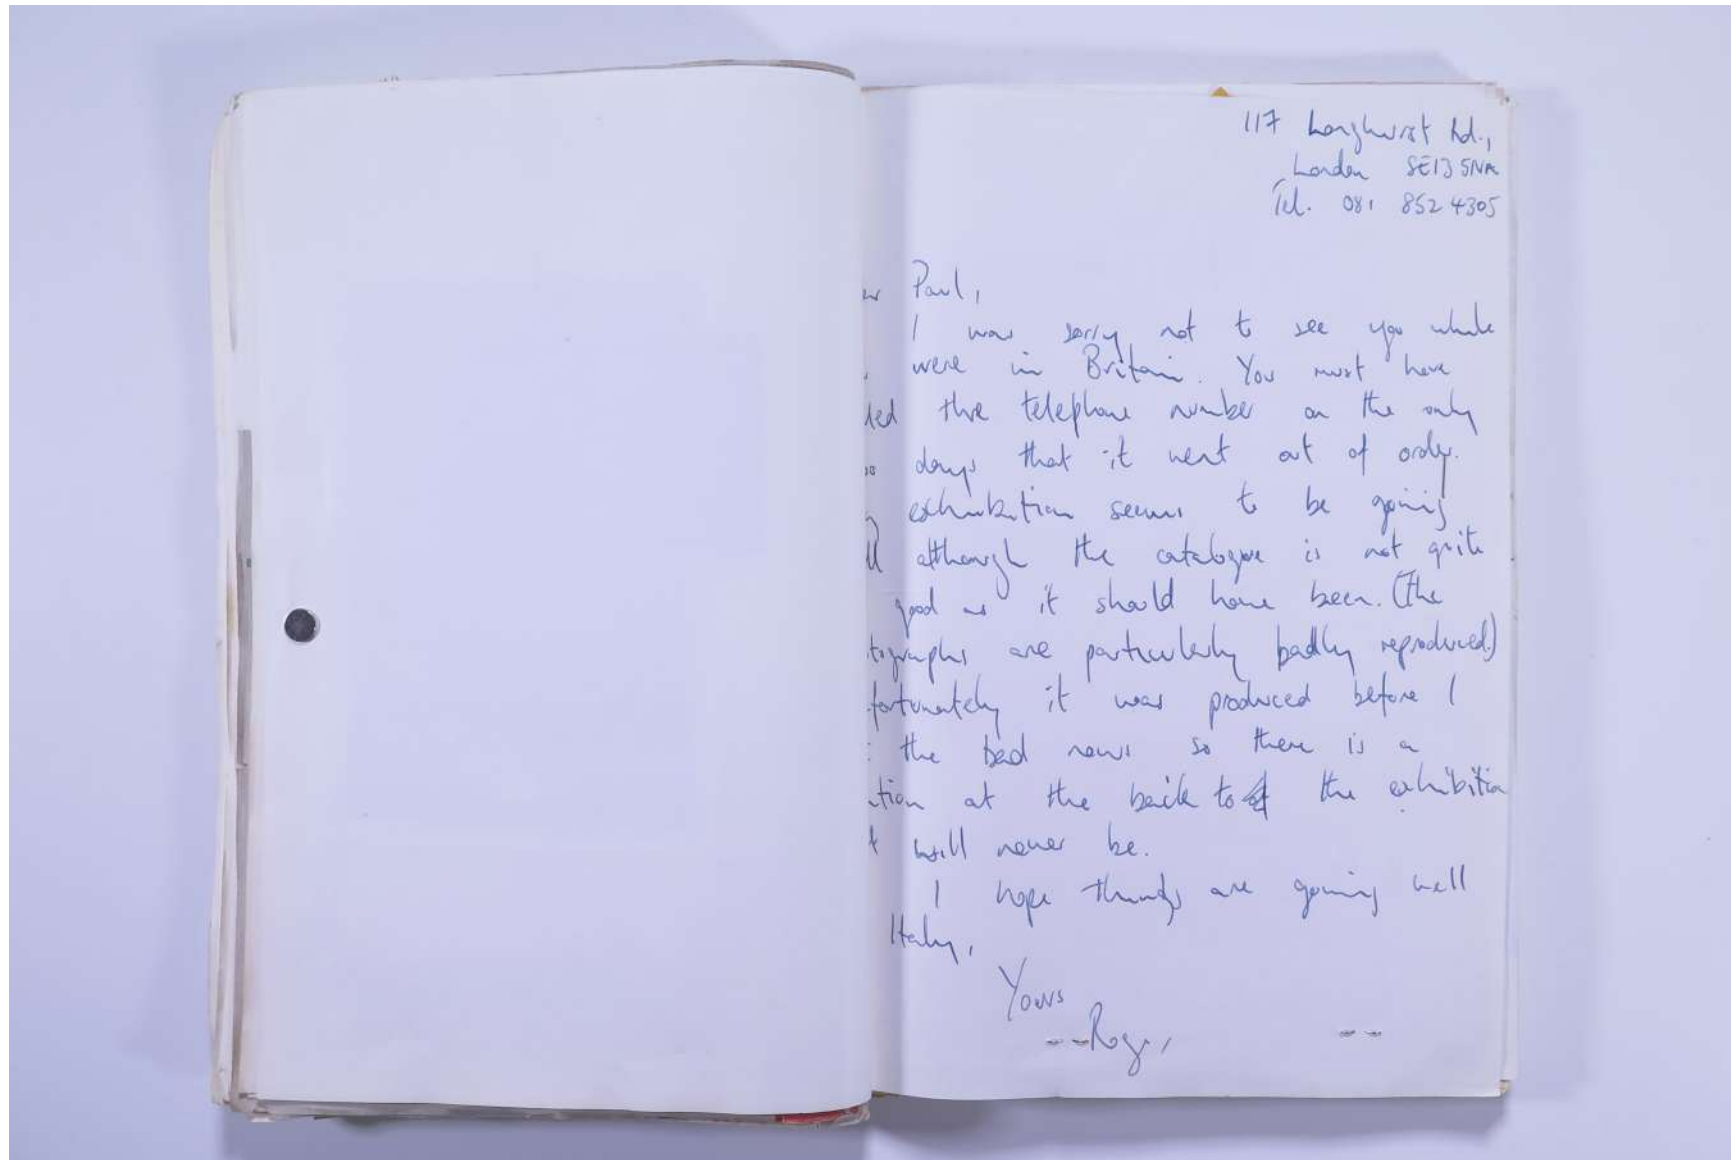 117 Longhurst Rd.,
London SE13 5NA
Tel. 081 852 4305
Paul,
I was sorry not to see you while
were in Britain. You must have
the telephone number on the only
days that it went out of order.
exhibition seems to be going
although the catalogue is not quite
good as it should have been. (The
tographs are particularly badly reproduced)
fortunately it was produced before I
the bad news so there is a
tion at the back to the exhibition
will never be.
I hope things are going well
Italy,
Yours
Roger